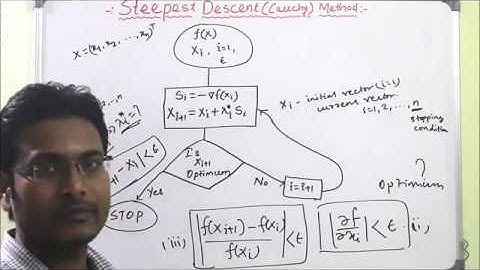 Steepest Descent (Cauchy) Method:-
X=(x₁, x₂, ..., xₙ)ᵀ
f(X)
Xi, i=1,
ε
Si = -∇f(Xi)
Xi+1 = Xi + λi* Si
Xi - initial vector (i=1)
current vector
i=1, 2, ..., n
stopping
condition
..., n
λi* = ?
- Xi| < ε
Is
Xi+1
Optimum
Yes
No
i=i+1
STOP
?
Optimum
(iii) |f(Xi+1) - f(Xi) / f(Xi)| < ε
|∂f/∂xi| < ε (ii)